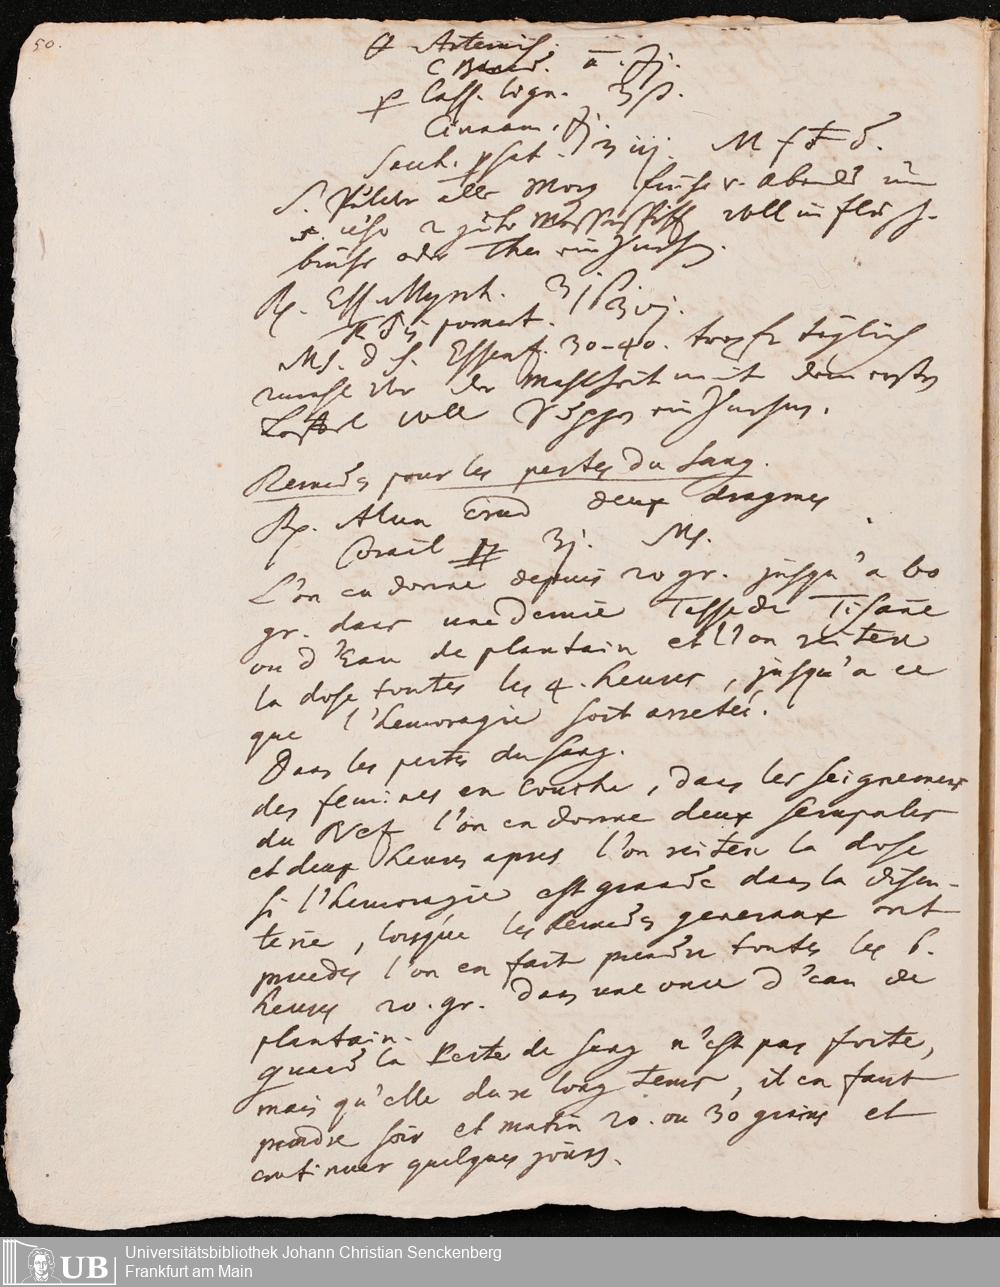 50.
Artemis.
C Bened. a. ʒj.
Cass. lign. ʒß.
Cinnam. ʒj.
Sach. p sat. ʒiij. M f
S. Pulver alle Morg früh v. Abends um
2 Messerspitz voll in fleisch-
brüh oder Thee ein
Rx. Ess. Myrrh. ʒjß
pomat. ʒvj.
MS. d S. Essenz. 30-40. tropfen täglich
vor der Mahlzeit mit dem ersten
voll Suppen
Remedes pour les pertes du Sang.
Rx. Alun Crud deux dragmes
Corail ʒj. MS.
L'on en donne depuis 20 gr. jusqu'a 60
gr. dans une demie Tasse de Tisane
ou d'Eau de plantain et l'on reitere
la dose toutes les 4. heures, jusqu'a ce
que l'hemoragie soit arreteé.
Dans les pertes du Sang.
des femmes en Couche, dans les seignemens
du Nef l'on en donne deux scrupules
et deux heures apres l'on reitere la dose
si l'hemoragie est grande dans la disen-
terie, lorsque les Remedes generaux ont
precedés l'on en fait prendre toutes les 6.
heures 20. gr. dans une once d'eau de
plantain.
quand la Perte de Sang n'est pas forte,
mais qu'elle dure long tems, il en faut
prendre soir et matin 20. ou 30 grains et
continuer quelques jours.
UB
Universitätsbibliothek Johann Christian Senckenberg
Frankfurt am Main